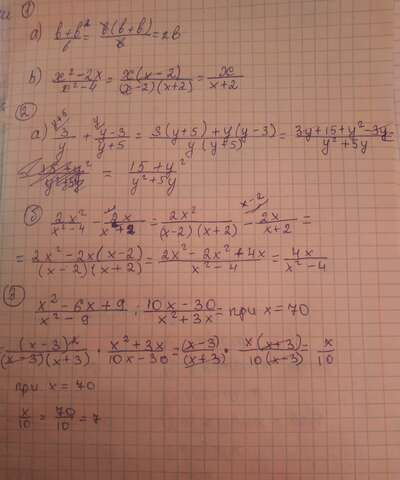 ①
а) b+b²/b = b(b+b)/b = 2b
b) x²-2x/x²-4 = x(x-2)/(x-2)(x+2) = x/x+2
②
а) 3/y + y-3/y+5 = 3(y+5)+y(y-3)/y(y+5) = 3y+15+y²-3y/y²+5y
= 15+y²/y²+5y
б) 2x²/x²-4 - 2x/x+2 = 2x²/(x-2)(x+2) - 2x/x+2 =
= 2x²-2x(x-2)/(x-2)(x+2) = 2x²-2x²+4x/x²-4 = 4x/x²-4
③
x²-6x+9/x²-9 : 10x-30/x²+3x = при x=70
(x-3)²/(x-3)(x+3) · x²+3x/10x-30 = (x-3)/(x+3) · x(x+3)/10(x-3) = x/10
при x=70
x/10 = 70/10 = 7